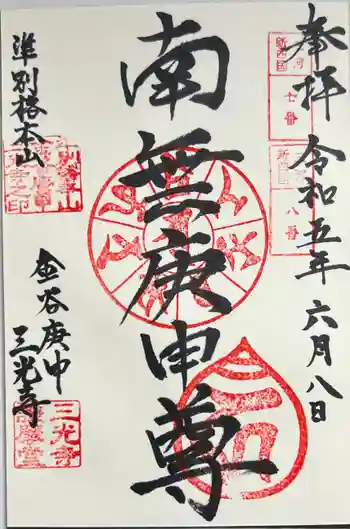 奉拝
令和五年
六月八日
七番
八番
南無庚申尊
準別格本山
金谷庚申
三光寺
三光寺